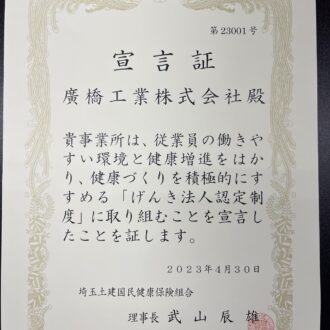 第23001号
宣言証
廣橋工業株式会社殿
貴事業所は、従業員の働きや
すい環境と健康増進をはか
り、健康づくりを積極的にす
すめる「げんき法人認定制
度」に取り組むことを宣言し
たことを証します。
2023年4月30日
埼玉土建国民健康保険組合
理事長 武山辰雄